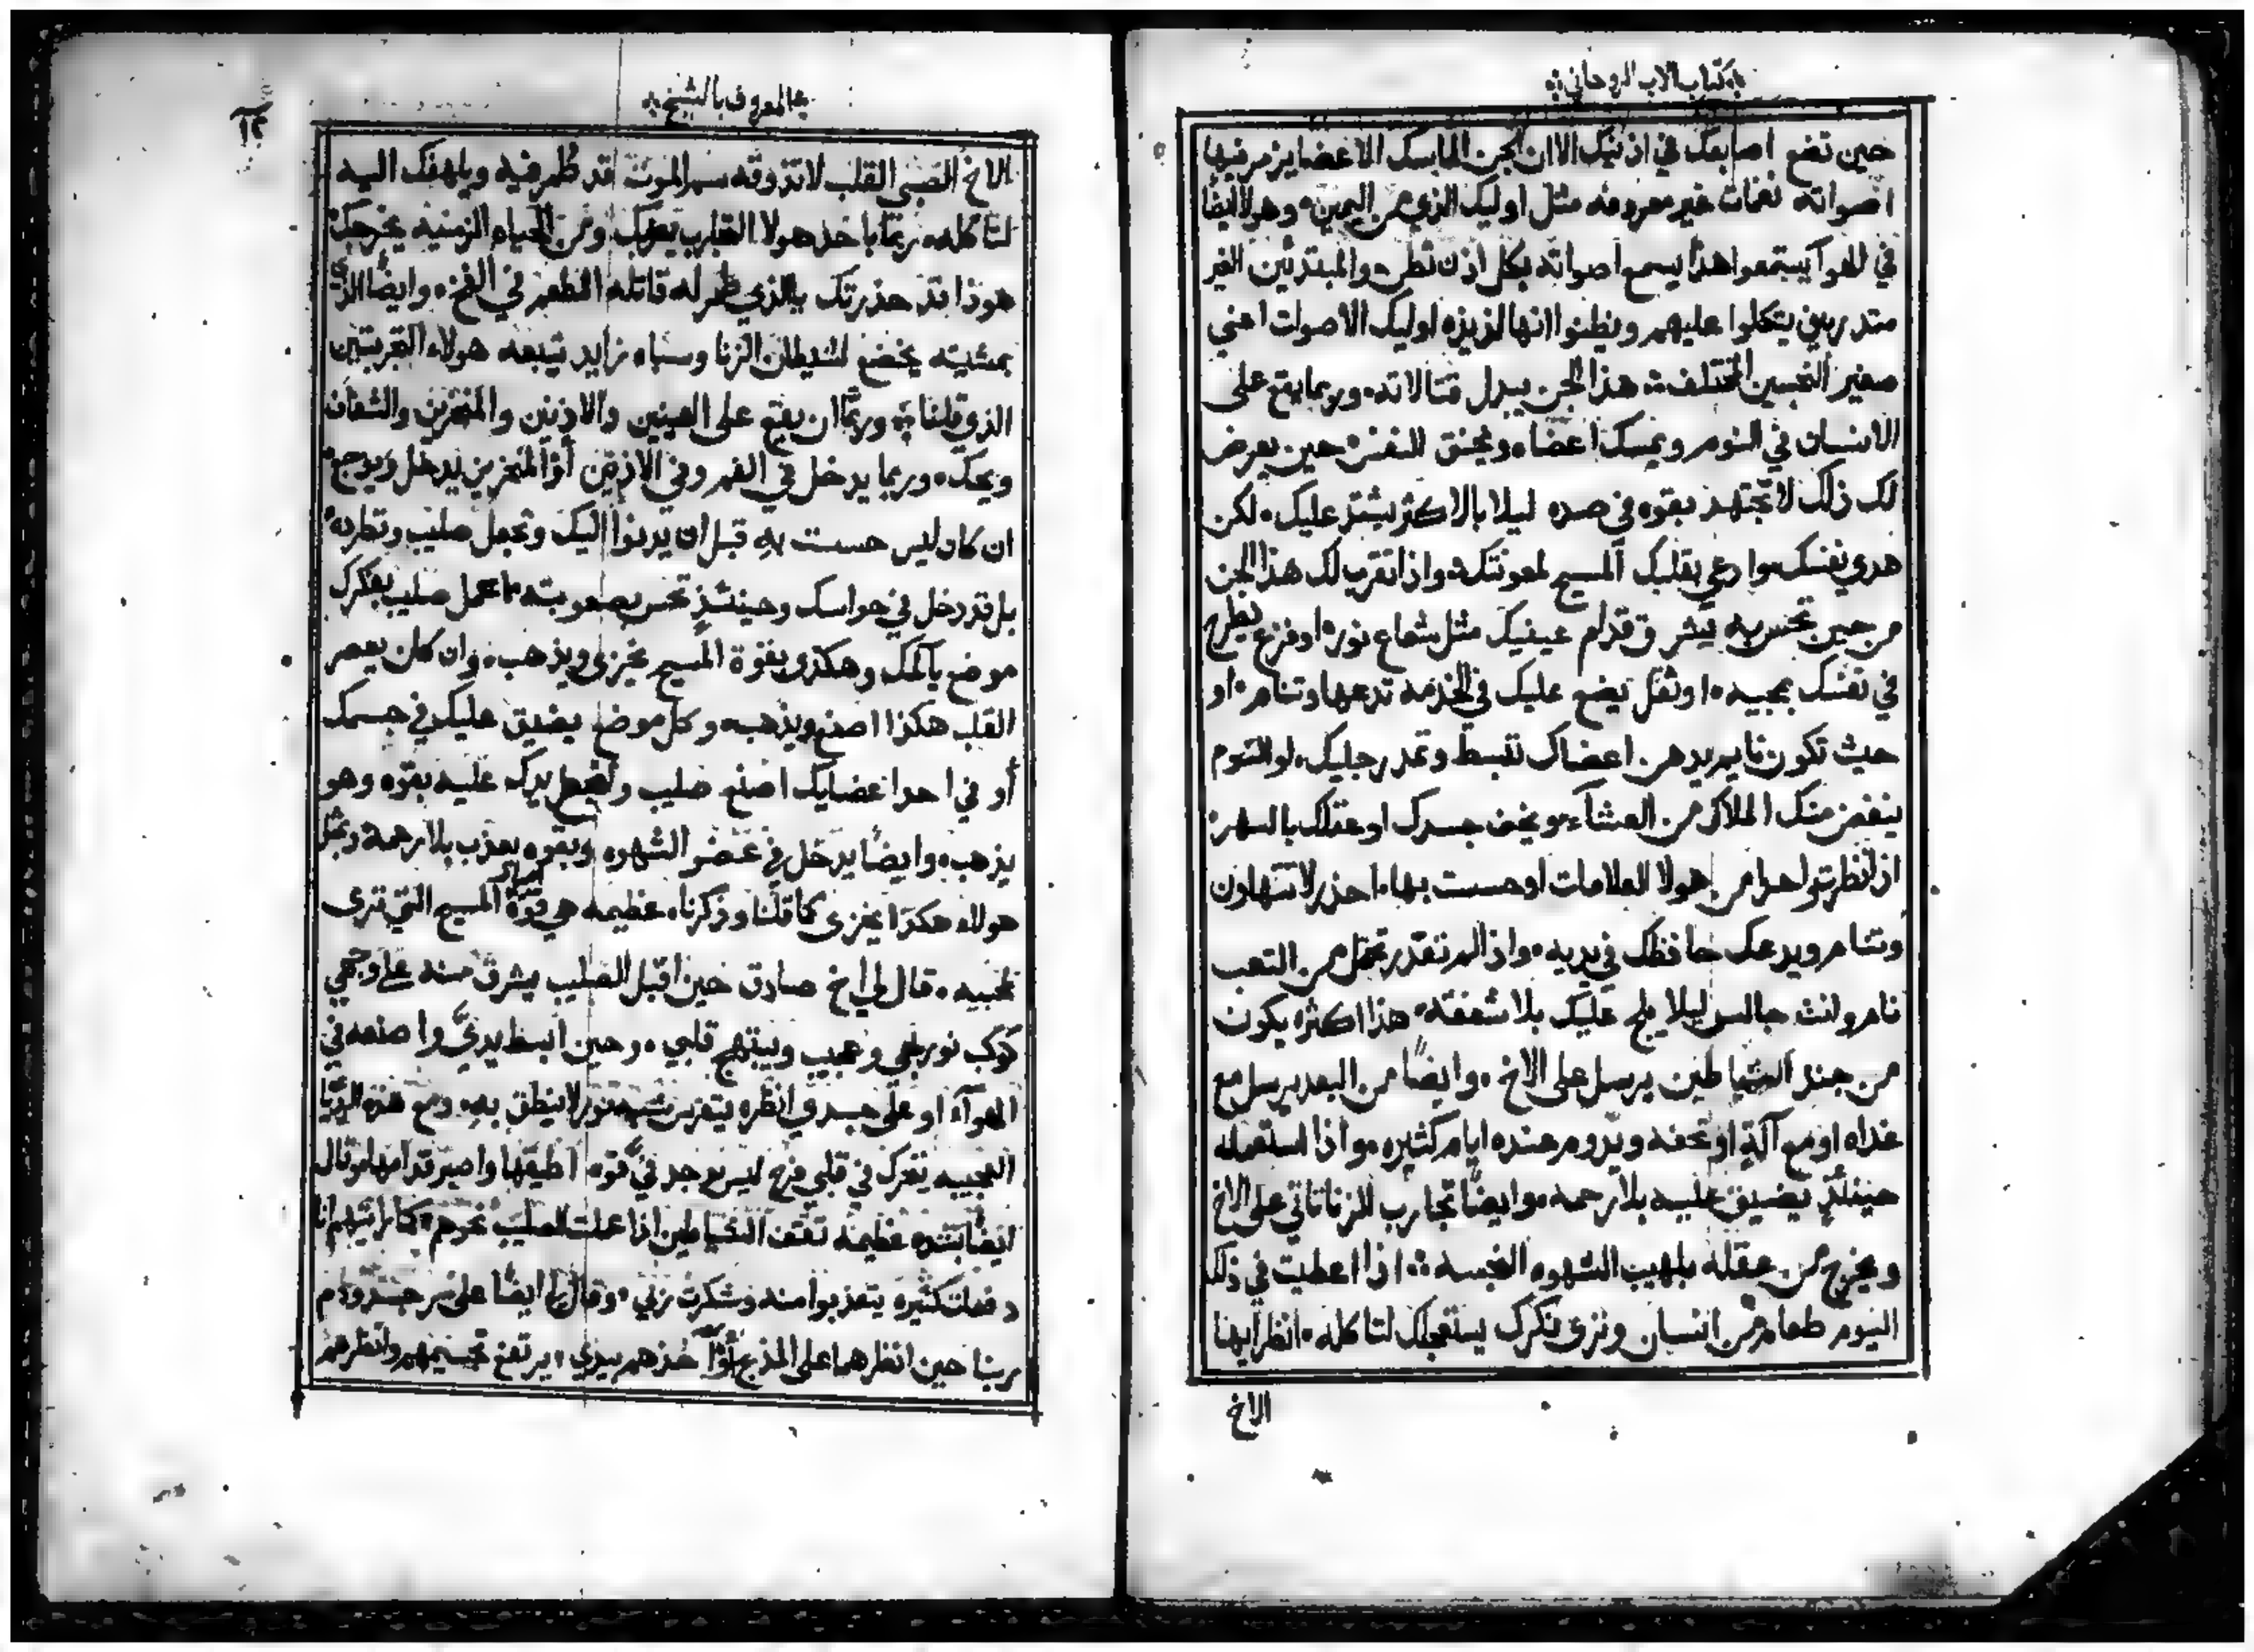 كتاب الاب الروحاني
حين تضع اصابعك في اذنيك الا ان الجن الماسك الاعضا يزمر فيها
اصواته نغمات غير معروفه مثل اوليك الذي من اليمين وهولا ايضًا
في الهوا يستمعوا هذا يسمع اصواته بكل اذن تطن والمبتدئين الغير
متدربين يتكلوا عليهم ويظنوا انها لذيذه اوليك الاصوات اعني
صغير النجسين المختلف هذا الجن يبدل قتالاته وربما يقع على
الانسان في النوم ويمسك اعضاه ويخنق للنفس حين يعرض
لك ذلك لا تجتهد بقوه في صده ليلا بالاكثر يشتد عليك لكن
هدي نفسك وادعي بقلبك المسيح لمعونتك واذا تقرب لك هذا الجن
من حين تحس به يشرق قدام عينيك مثل شعاع نوره او فزع يطرح
في نفسك بمجيه او ثقل يضع عليك في الخدمه تدعها وتنام او
حيث تكون نايم يدهن اعضاك تنبسط وتمد رجليك لو النوم
ينغض منك الملاك من العشاء ويخف جسدك او عقلك بالسهر
اذ انظرت واحدا من هولا العلامات او حست بها احذر لا تتهاون
وتنام ويدعك حافظك في يديه واذ الم تقدر تحمل من التعب
نام وانت جالس ليلا يلح عليك بلا شفقه هذا اكثره يكون
من جند الشياطين يرسل على الاخ وايضًا من البعد يرسل مع
غداه او مع آلةٍ او تحفه ويدوم عنده ايام كثيره واذا استعمله
حينئذٍ يضيق عليه بلا رحمه وايضًا تجارب للزنا تاتي على الاخ
ويخرج من عقله بلهيب الشهوه النجسه اذا اعطيت في ذلك
اليوم طعام من انسان وتري فكرك يستعجلك لتاكله انظر ايها
الاخ
المعروف بالشيخ
١٢
الاخ الصبي القلب لا تذوقه سم الموت قد طمر فيه ويلهفك اليه
لتاكله ربما باخذ هولا القارب يعريك ومن الحياه الزمنيه يخرجك
هوذا قد حذرتك بالذي ظهر له قاتله الطعم في الفخ وايضًا الذي
بمشيته يخضع لشيطان الزنا وسباه زايد تتبعه هولاء التجربتين
الذي قلنا وربما ان يقع على العينين والاذنين والمنخرين والشعاف
ويحك وربما يدخل في الفم وفي الاذنين أو المنخرين يدخل ويوجع
ان كان ليس حست به قبل ان يدنوا اليك وتجعل صليب وتطرده
بل قد دخل في حواسك وحينئذٍ تحس بصعوبته اعمل صليب بفكرك
موضع يآلمك وهكذي بقوة المسيح يخزى ويذهب وان كان يعصر
القلب هكذا اصنع ويذهب وكل موضع يضيق عليك في جسمك
أو في احد اعضايك اصنع صليب ولحط يدك عليه بقوه وهو
يذهب وايضًا يدخل في عضو الشهوه وبقوه يعذب بلا رحمة وبمثل
هولاء هكذا يخزى كما قلنا وذكرناه عظيمه هي قوة المسيح التي ترى
لمحبيه قال لي اخ صادق حين اقبل الصليب يشرق منه على وجهي
كوكب نور بهي وعجيب ويبتهج قلبي وحين ابسط يديَّ واصنعه في
الهوآء او على جسدي انظره يتغير شبه نور لا ينطق به ومع هذه الرؤيا
العجيبه يتحرك في قلبي فرح ليس يوجد فيَّ قوه اطيقها واصير قدامها وقال
ايضًا بشده عظيمه تقف الشياطين اذا عملت الصليب نحوهم كما رايتهم انا
دفعات كثيره يتعذبوا منه وشكرت ربي وقال لي ايضًا على سر جسد ودم
ربنا حين انظرهما على المذبح خذهم بيدي يرتفع تجسيمهم وانظرهم